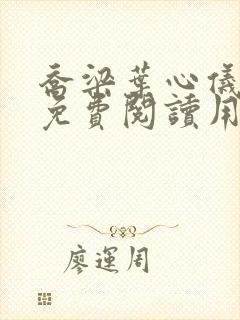 喬梁葉心儀
免費閱讀用
廖運周